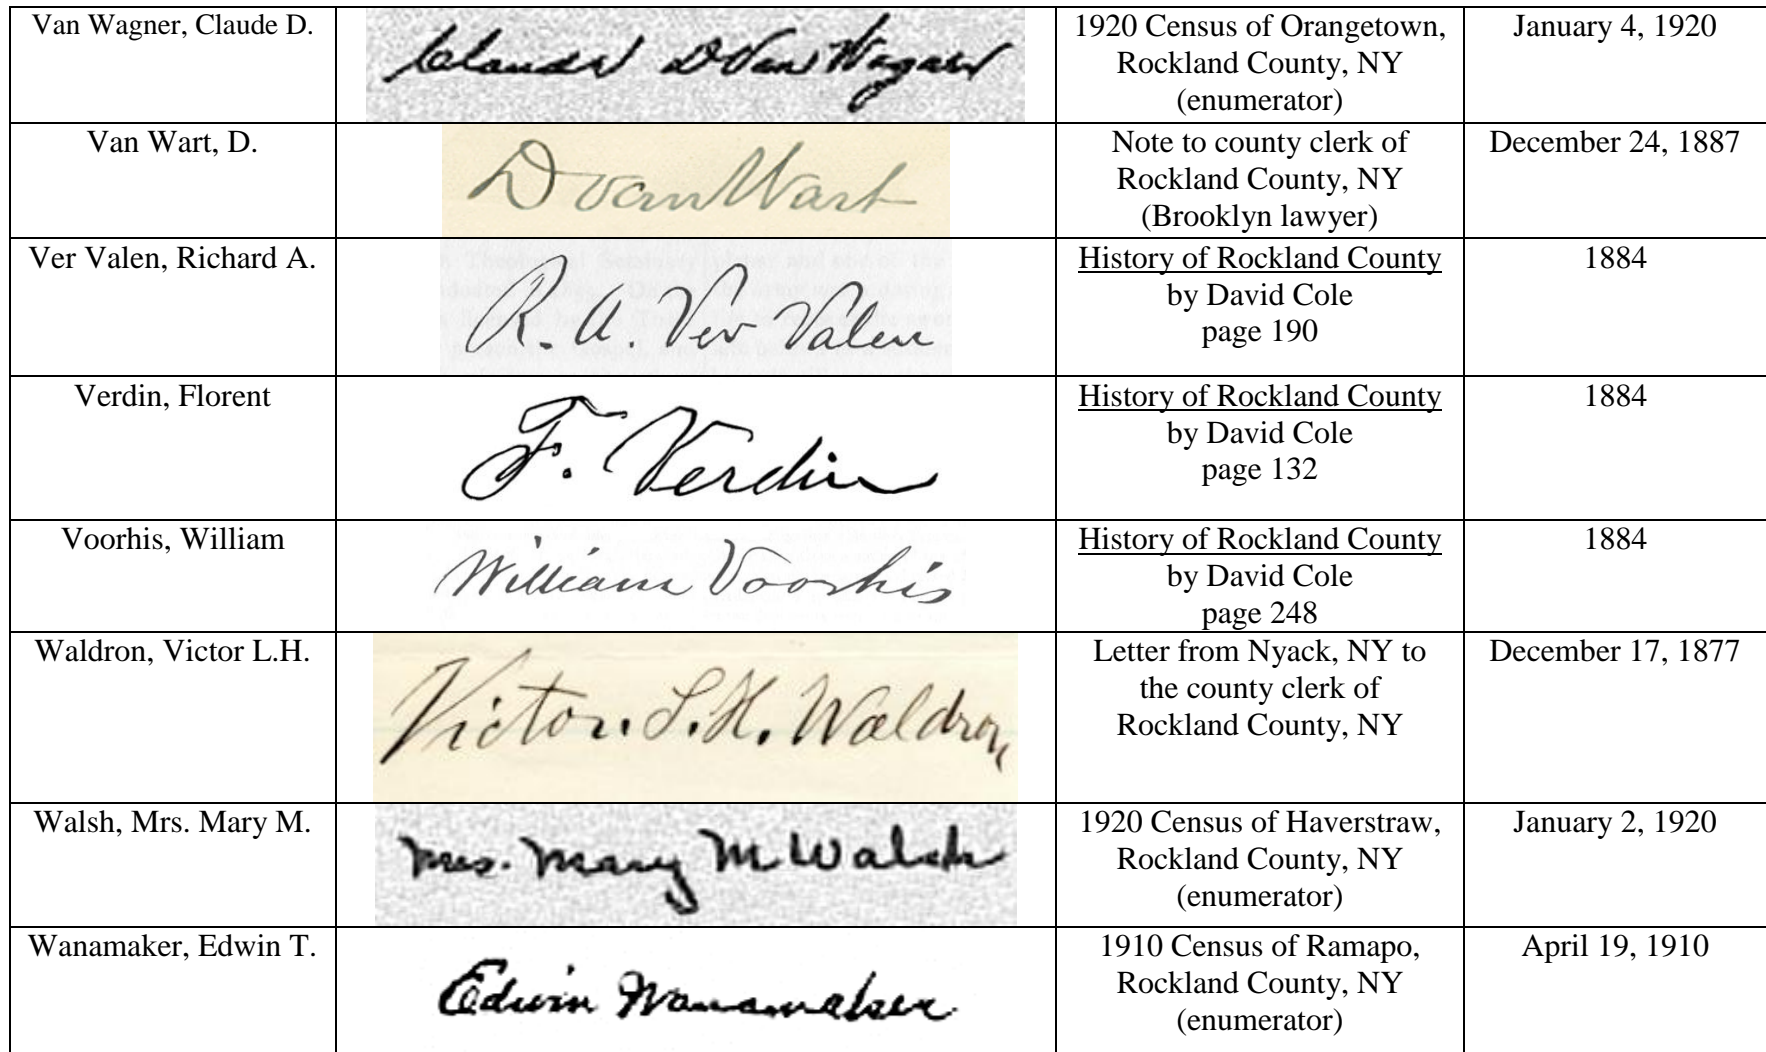 Van Wagner, Claude D.
Claude D Van Wagner
1920 Census of Orangetown,
Rockland County, NY
(enumerator)
January 4, 1920
Van Wart, D.
D Van Wart
Note to county clerk of
Rockland County, NY
(Brooklyn lawyer)
December 24, 1887
Ver Valen, Richard A.
R. A. Ver Valen
History of Rockland County
by David Cole
page 190
1884
Verdin, Florent
F. Verdin
History of Rockland County
by David Cole
page 132
1884
Voorhis, William
William Voorhis
History of Rockland County
by David Cole
page 248
1884
Waldron, Victor L.H.
Victor. L.H. Waldron,
Letter from Nyack, NY to
the county clerk of
Rockland County, NY
December 17, 1877
Walsh, Mrs. Mary M.
Mrs. Mary M Walsh
1920 Census of Haverstraw,
Rockland County, NY
(enumerator)
January 2, 1920
Wanamaker, Edwin T.
Edwin Wanamaker
1910 Census of Ramapo,
Rockland County, NY
(enumerator)
April 19, 1910